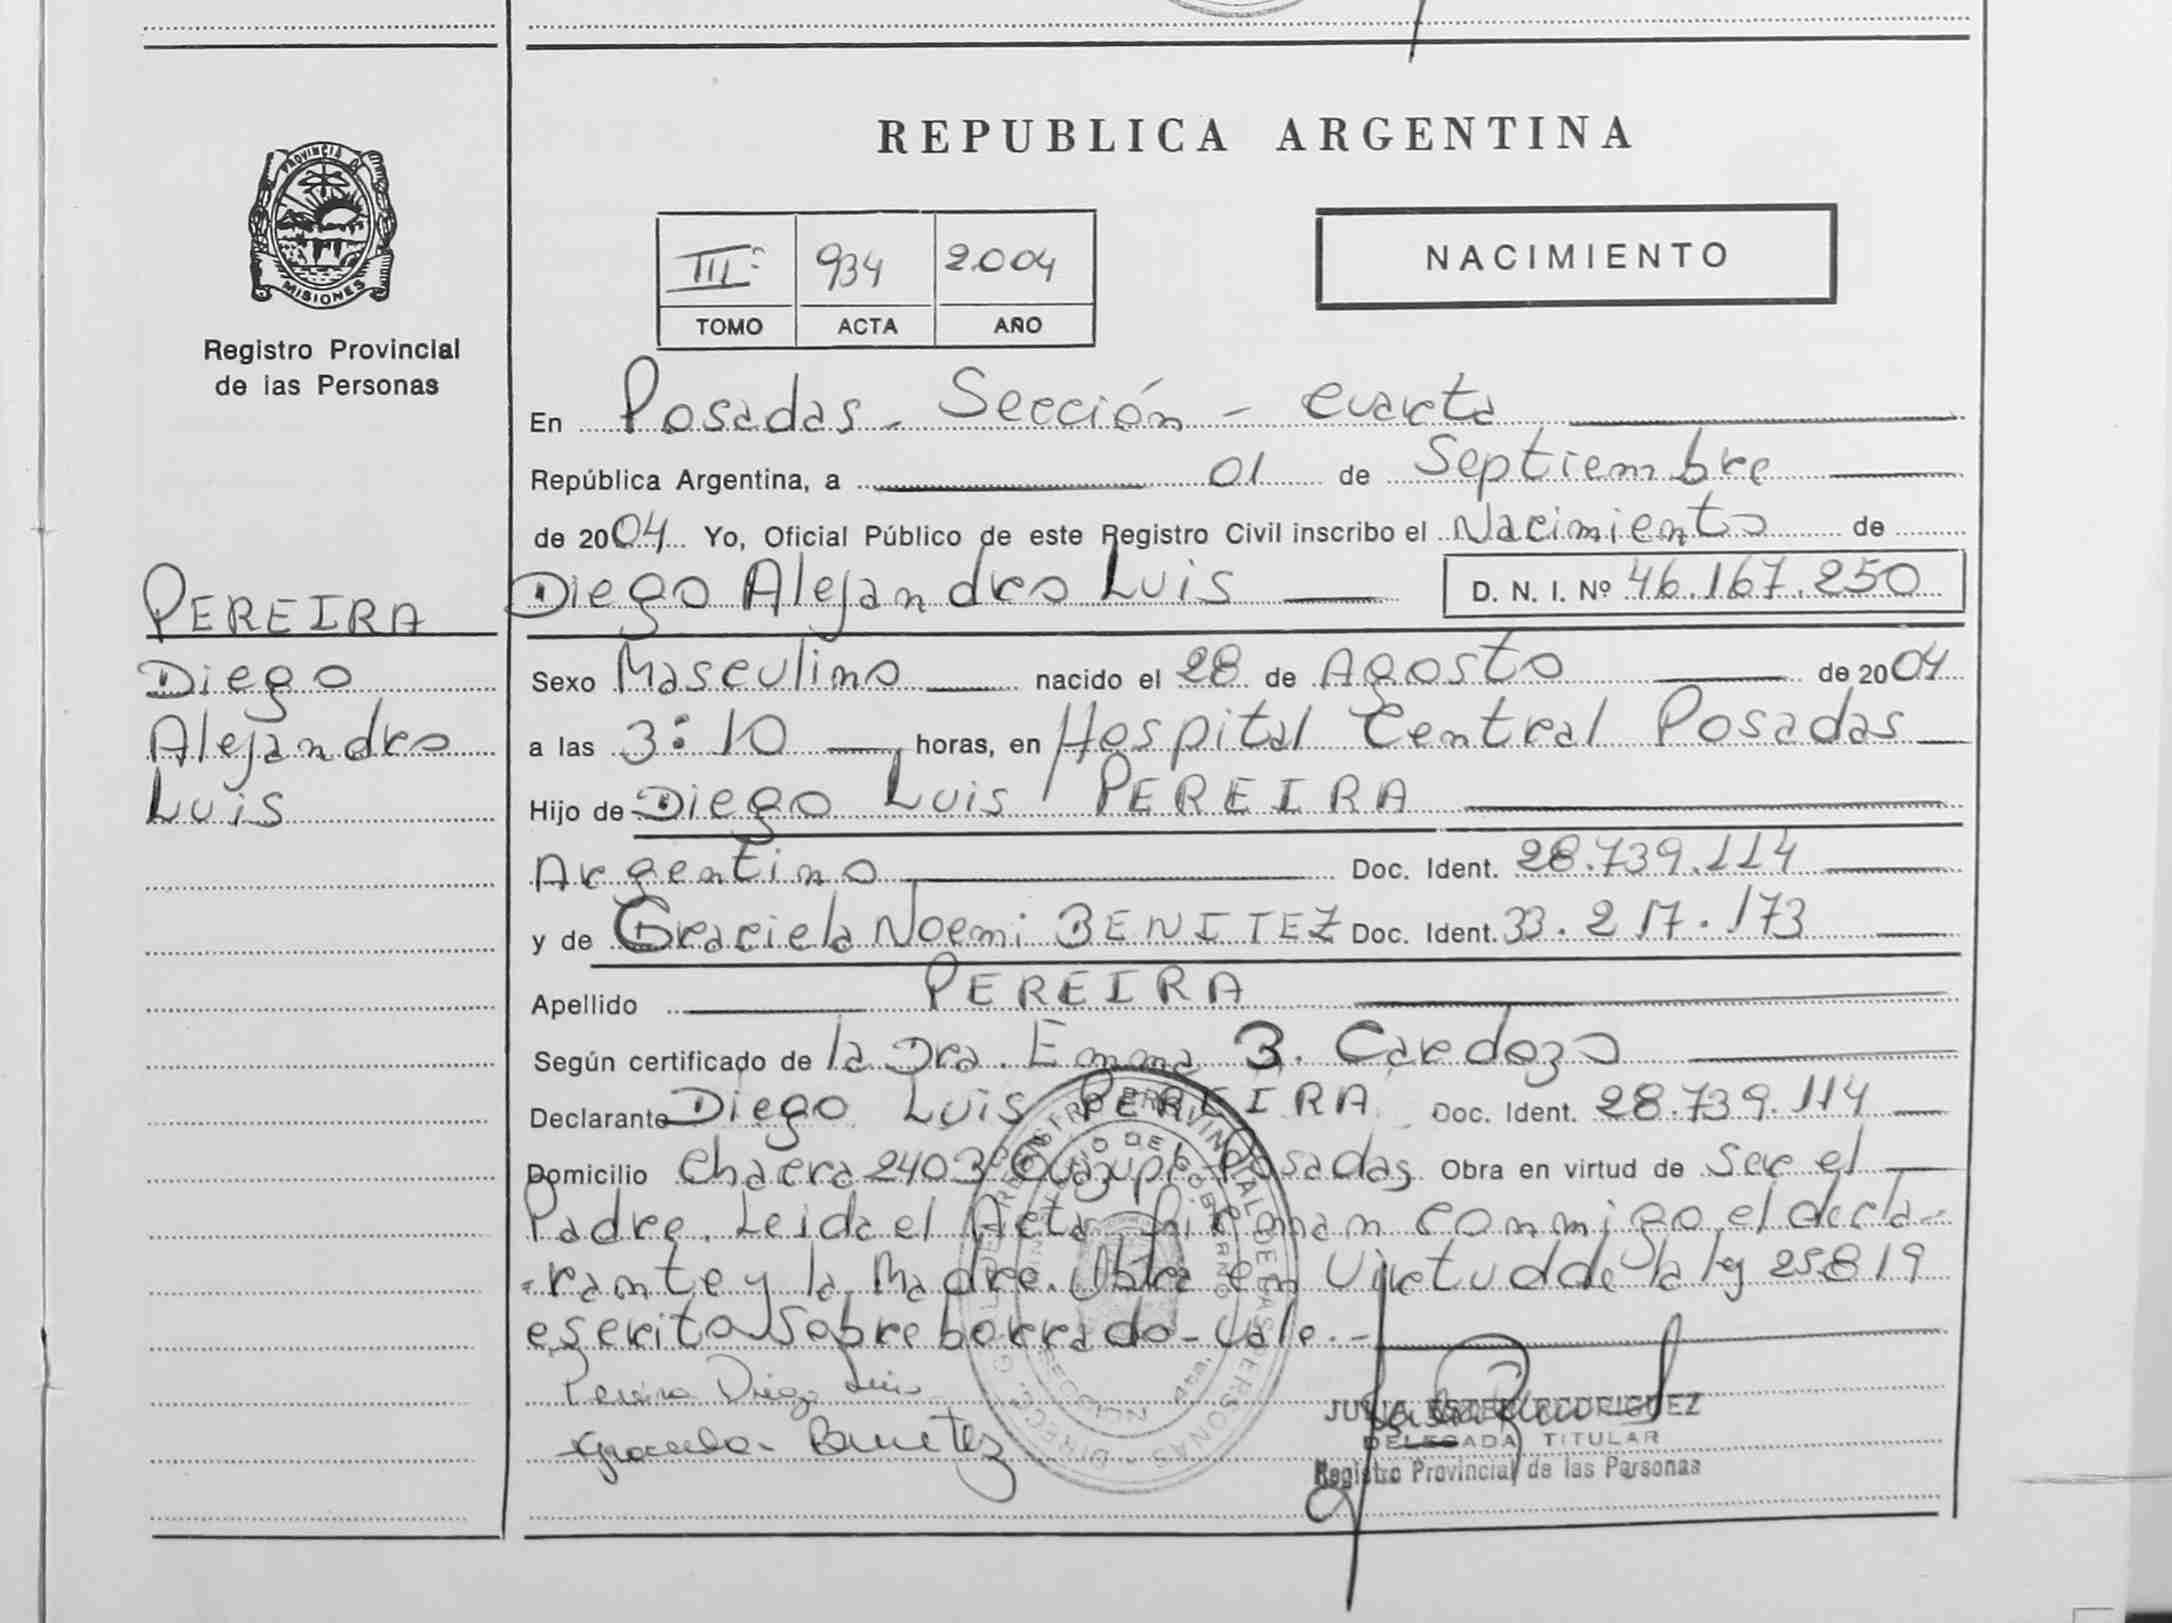 REPUBLICA ARGENTINA
PROVINCIA DE MISIONES
Registro Provincial
de las Personas
III: 934 2004
TOMO ACTA AÑO
NACIMIENTO
En Posadas - Sección - cuarta
República Argentina, a 01 de Septiembre
de 2004 Yo, Oficial Público de este Registro Civil inscribo el Nacimiento de
Diego Alejandro Luis D. N. I. Nº 46.167.250
PEREIRA
Diego
Alejandro
Luis
Sexo Masculino nacido el 28 de Agosto de 2004
a las 3:10 horas, en Hospital Central Posadas
Hijo de Diego Luis PEREIRA
Argentino Doc. Ident. 28.739.114
y de Graciela Noemi BENITEZ Doc. Ident. 33.217.173
Apellido PEREIRA
Según certificado de la Dra. Emma B. Cardozo
Declarante Diego Luis PEREIRA Doc. Ident. 28.739.114
Domicilio Chacra 2403 Posadas Obra en virtud de Ser el
Padre. Leida el Acta firman conmigo el decla-
-rante y la Madre. Obra en Virtud de la ley 25819
escrito sobre borrado - Vale.-
Pereira Diego Luis
Graciela Benitez
JULIA ESTER RODRIGUEZ
DELEGADA TITULAR
Registro Provincial de las Personas